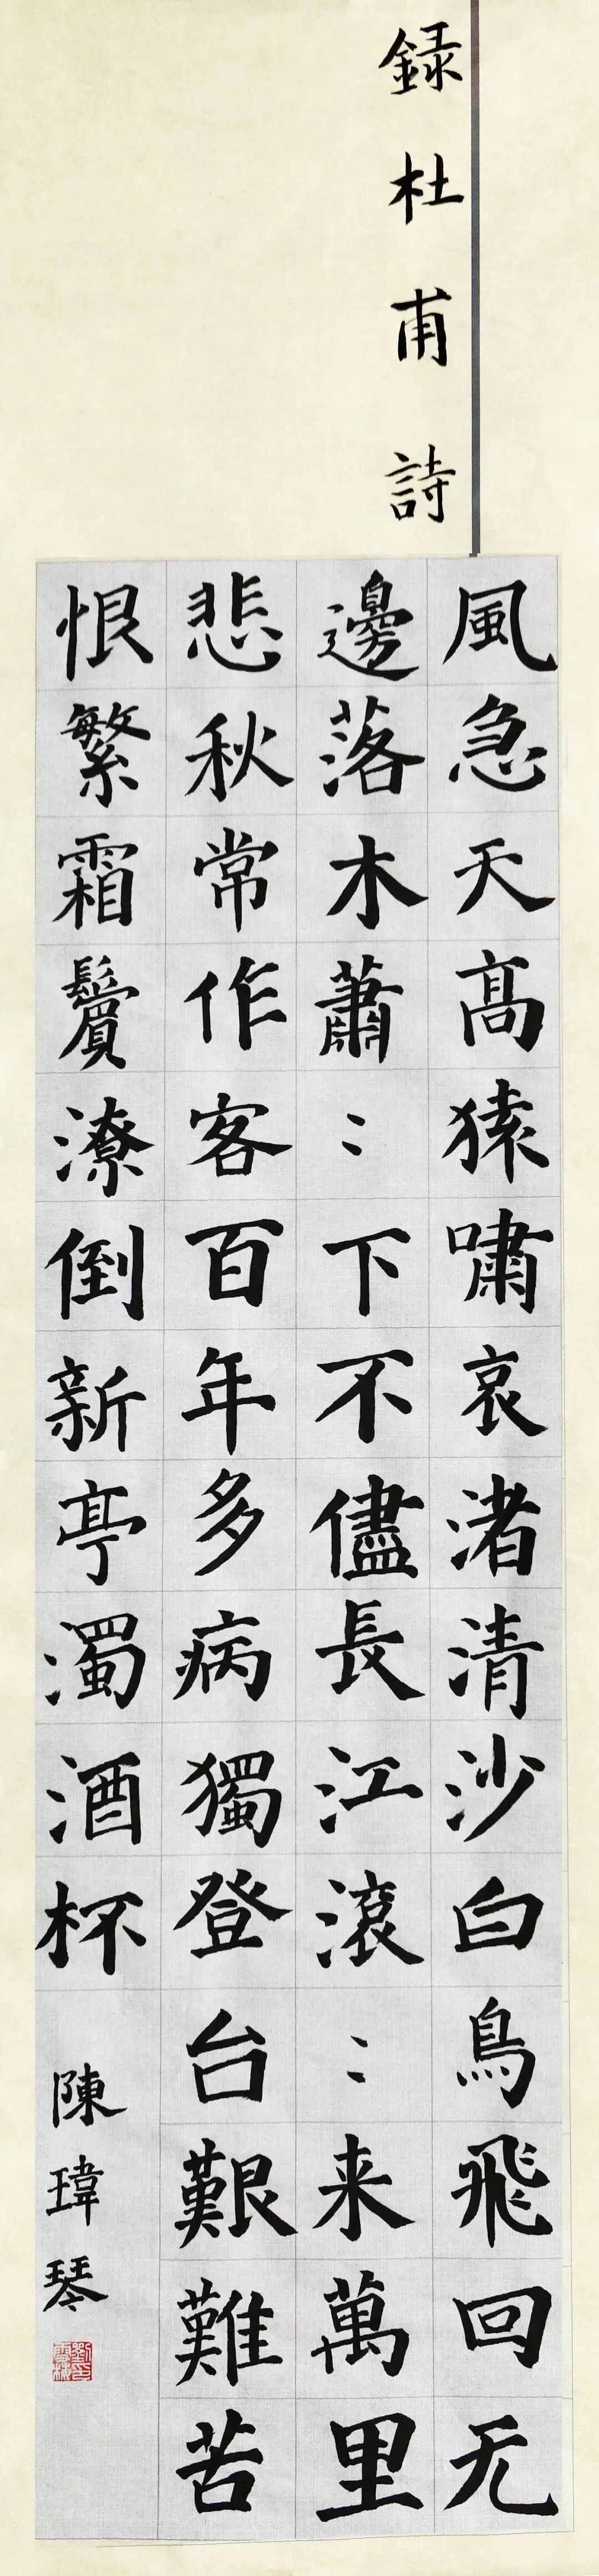 録杜甫詩
風急天高猿嘯哀渚清沙白鳥飛回无
邊落木蕭〻下不儘長江滾〻来萬里
悲秋常作客百年多病獨登台艱難苦
恨繁霜鬢潦倒新亭濁酒杯
陳瑋琴